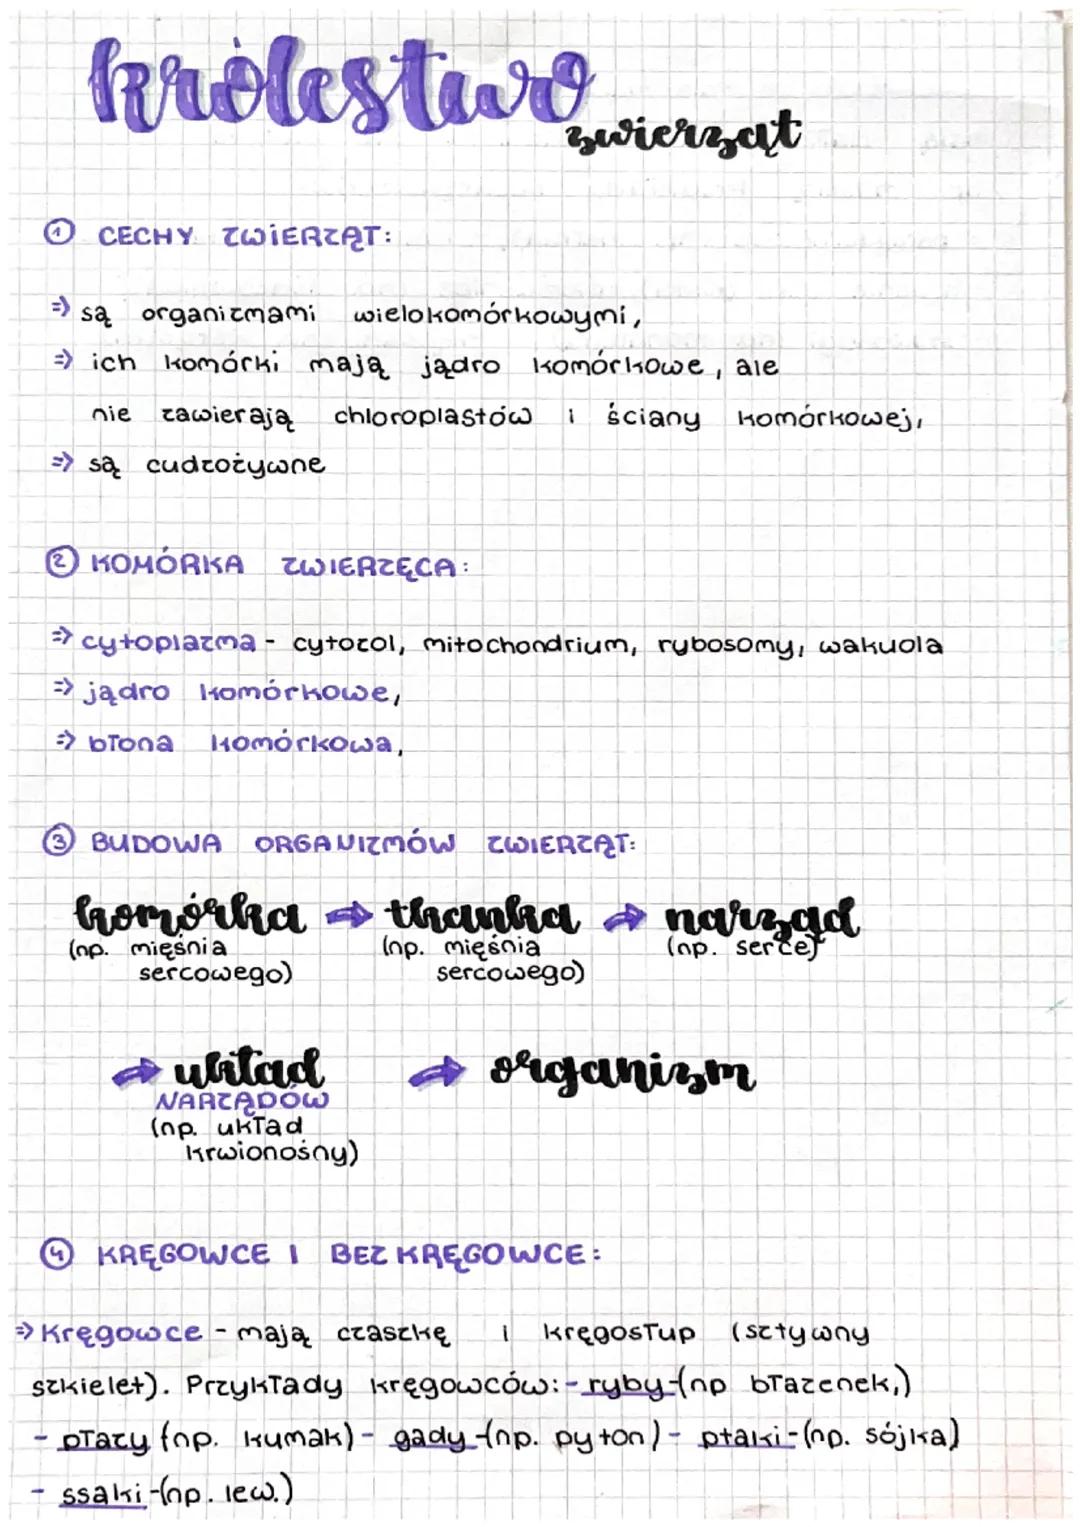 królestwo
zwierząt
① CECHY ZWiERZĄT:
⇒ są organizmami wielokomórkowymi,
⇒ ich komórki mają jądro komórkowe, ale
nie zawierają chloroplastów i ściany komórkowej,
⇒ są cudzożywne
② KOMÓRKA ZWIERZĘCA:
⇒ cytoplazma - cytozol, mitochondrium, rybosomy, wakuola
⇒ jądro komórkowe,
⇒ błona komórkowa,
③ BUDOWA ORGANIZMÓW ZWIERZĄT:
komórka ⇒ tkanka ⇒ narząd
(np. mięśnia (np. mięśnia (np. serce)
sercowego) sercowego)
⇒ układ ⇒ organizm
NARZĄDÓW
(np. układ
krwionośny)
④ KRĘGOWCE I BEZKRĘGOWCE:
⇒ Kręgowce - mają czaszkę i kręgosłup (sztywny
szkielet). Przykłady kręgowców: - ryby - (np błazenek,)
- płazy (np. kumak) - gady - (np. pyton) - ptaki - (np. sójka)
- ssaki - (np. lew.)